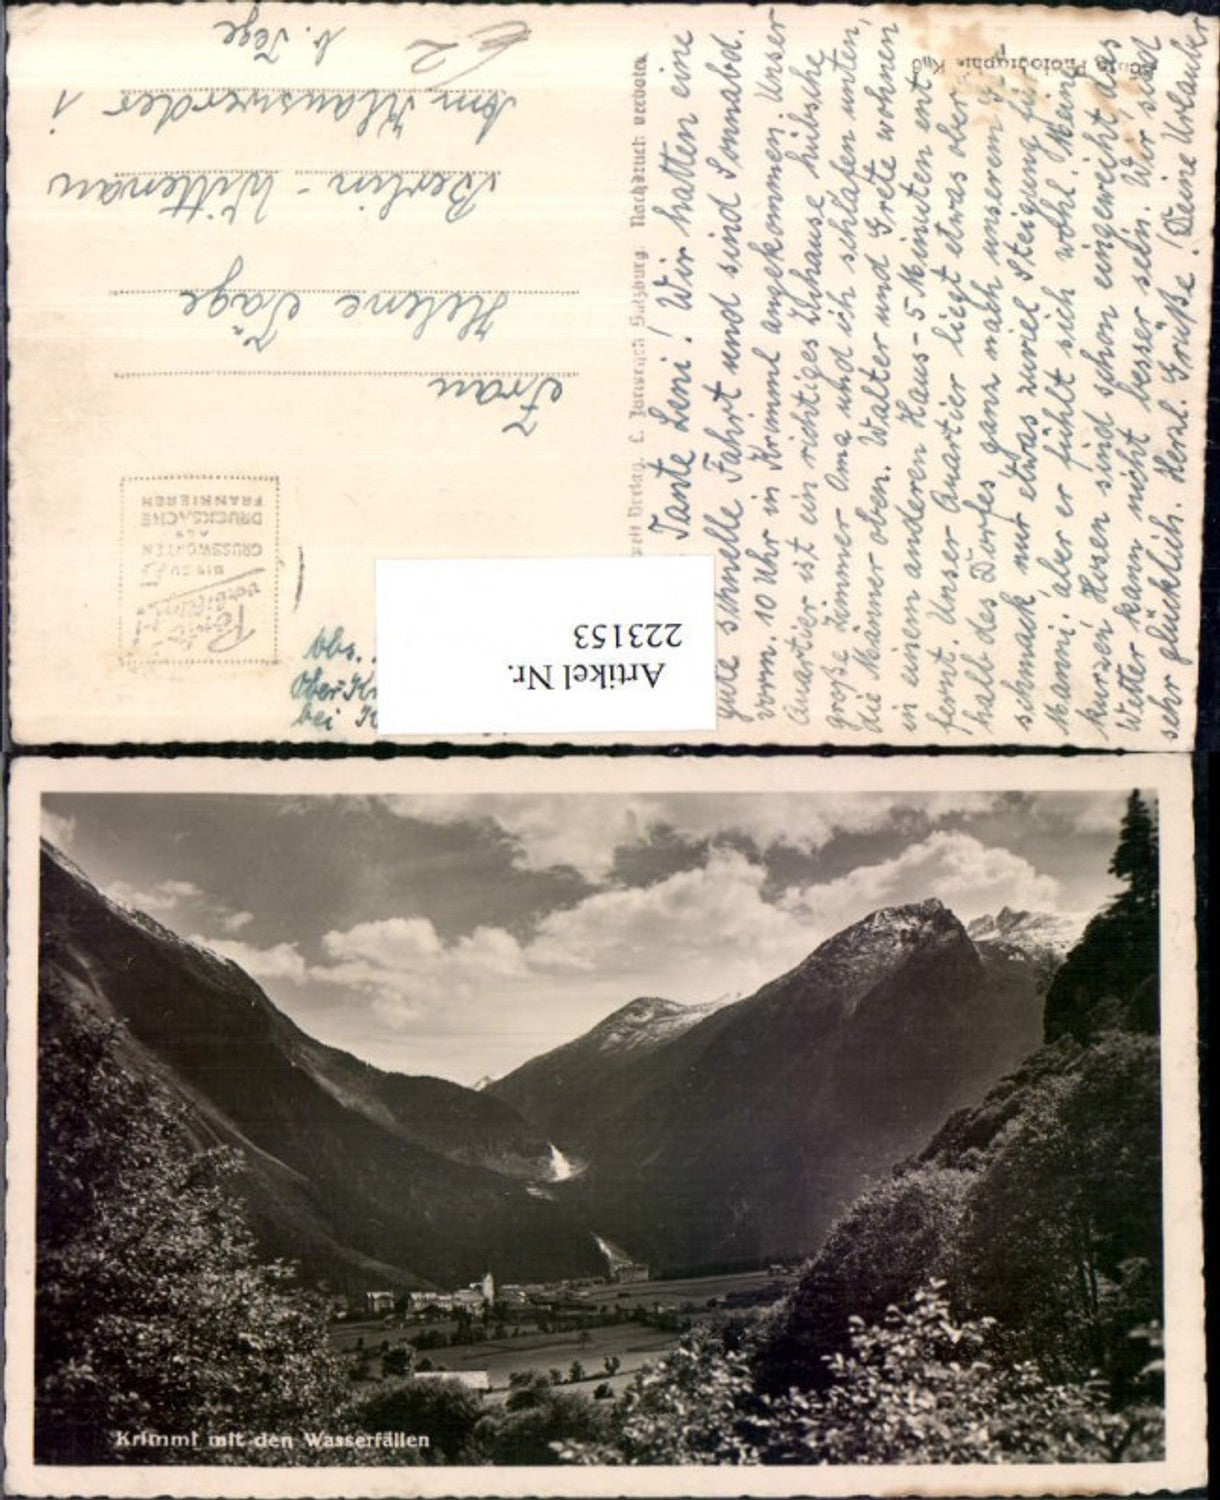 Tante Leni! Wir hatten eine
gute schnelle Fahrt und sind Sonnabd.
vorm. 10 Uhr in Krimml angekommen. Unser
Quartier ist ein richtiges Zuhause hübsche
große Zimmer Oma und ich schlafen unten,
die Männer oben. Walter und Grete wohnen
in einem anderen Haus - 5 Minuten ent-
fernt. Unser Quartier liegt etwas ober-
halb des Dorfes ganz nach unserem Ge-
schmack nur etwas zuviel Steigung für
Manni, aber er fühlt sich wohl. Meine
kurzen Hosen sind schon eingeweiht, das
Wetter kann nicht besser sein. Wir sind
sehr glücklich. Herzl. Grüße! Deine Urlauber
Nachdruck verboten
Verlag. C. Jurischek Salzburg
Photographie
Frau
Helene Täge
Berlin - Wittenau
Am Klauswerder 1
b. Tege
Porto-
verbilligt
BIS ZU 5
GRUSSWORTEN
ALS
DRUCKSACHE
FRANKIEREN
Abs.
Ober Kr
bei K
Artikel Nr.
223153
Krimml mit den Wasserfällen